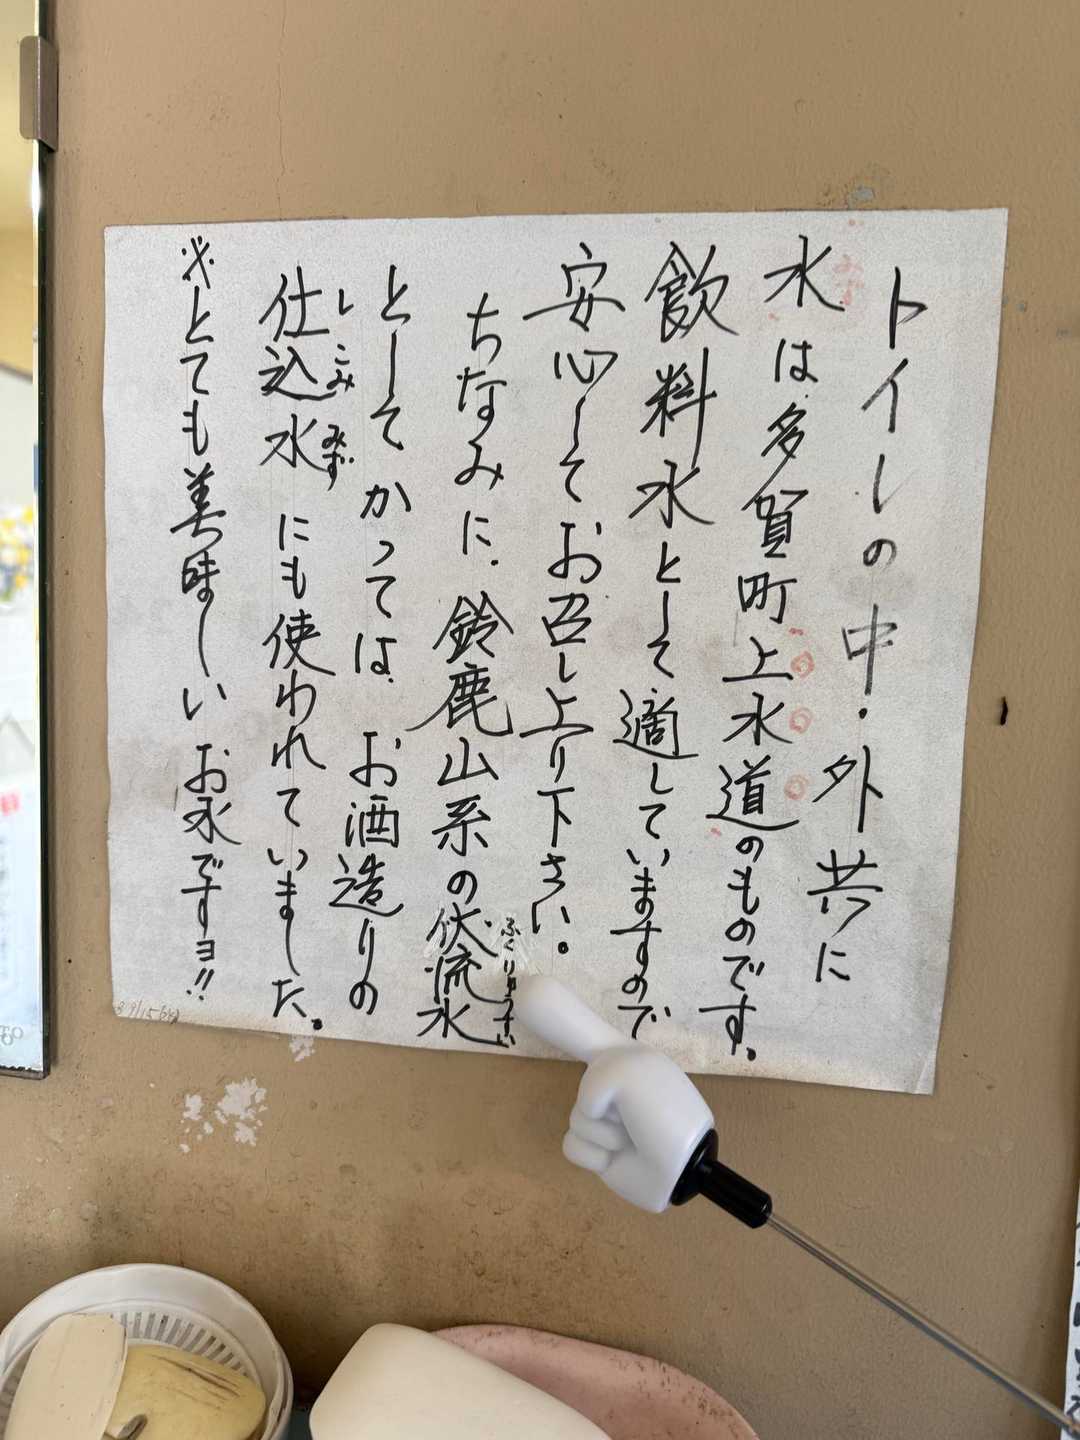 トイレの中・外共に
水は多賀町上水道のものです。
飲料水として適していますので
安心してお召し上り下さい。
ちなみに、鈴鹿山系の伏流水
ふくりゅうすい
としてかつては、お酒造りの
しこみみず
仕込水にも使われていました。
※とても美味しいお水ですョ!!